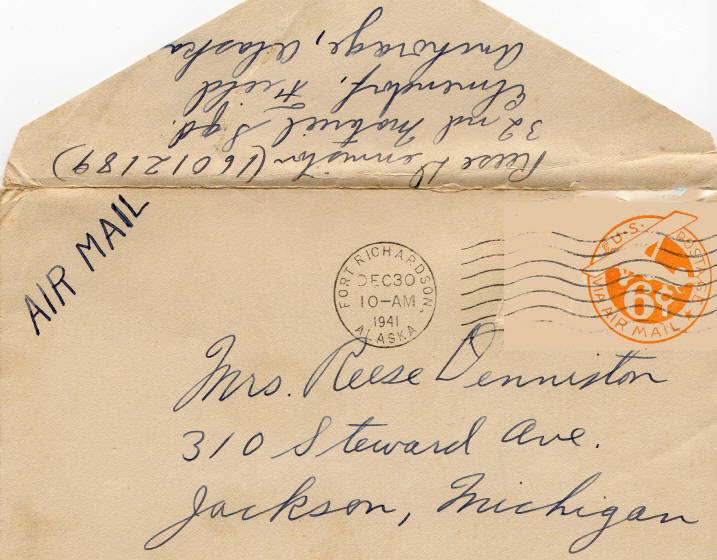 Reese Denniston (16012189)
32nd Materiel Sqd.
Elmendorf Field
Anchorage, Alaska
AIR MAIL
FORT RICHARDSON,
DEC 30
10-AM
1941
ALASKA
U.S. POSTAGE
6¢
VIA AIR MAIL
Mrs. Reese Denniston
310 Steward Ave.
Jackson, Michigan